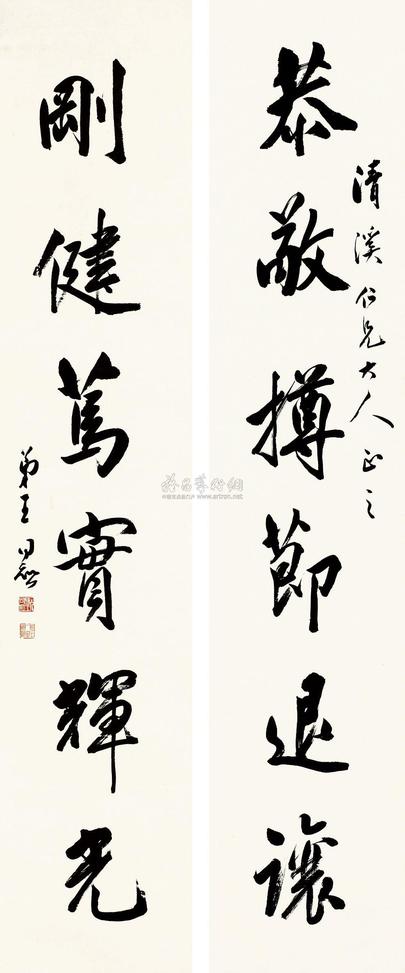 恭敬撙節退讓
清溪仁兄大人正之
剛健篤實輝光
弟王同愈
雅昌藝術網
www.artron.net